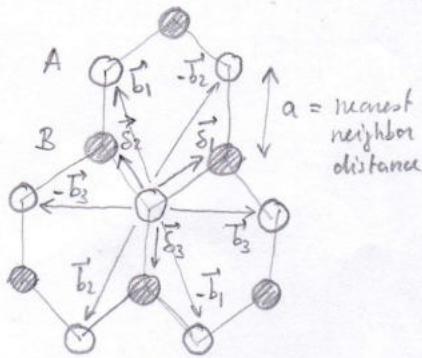 A
b₁
-b₂
a = nearest
neighbor
distance
B
δ₂
δ₁
-b₃
b₃
δ₃
b₂
-b₁